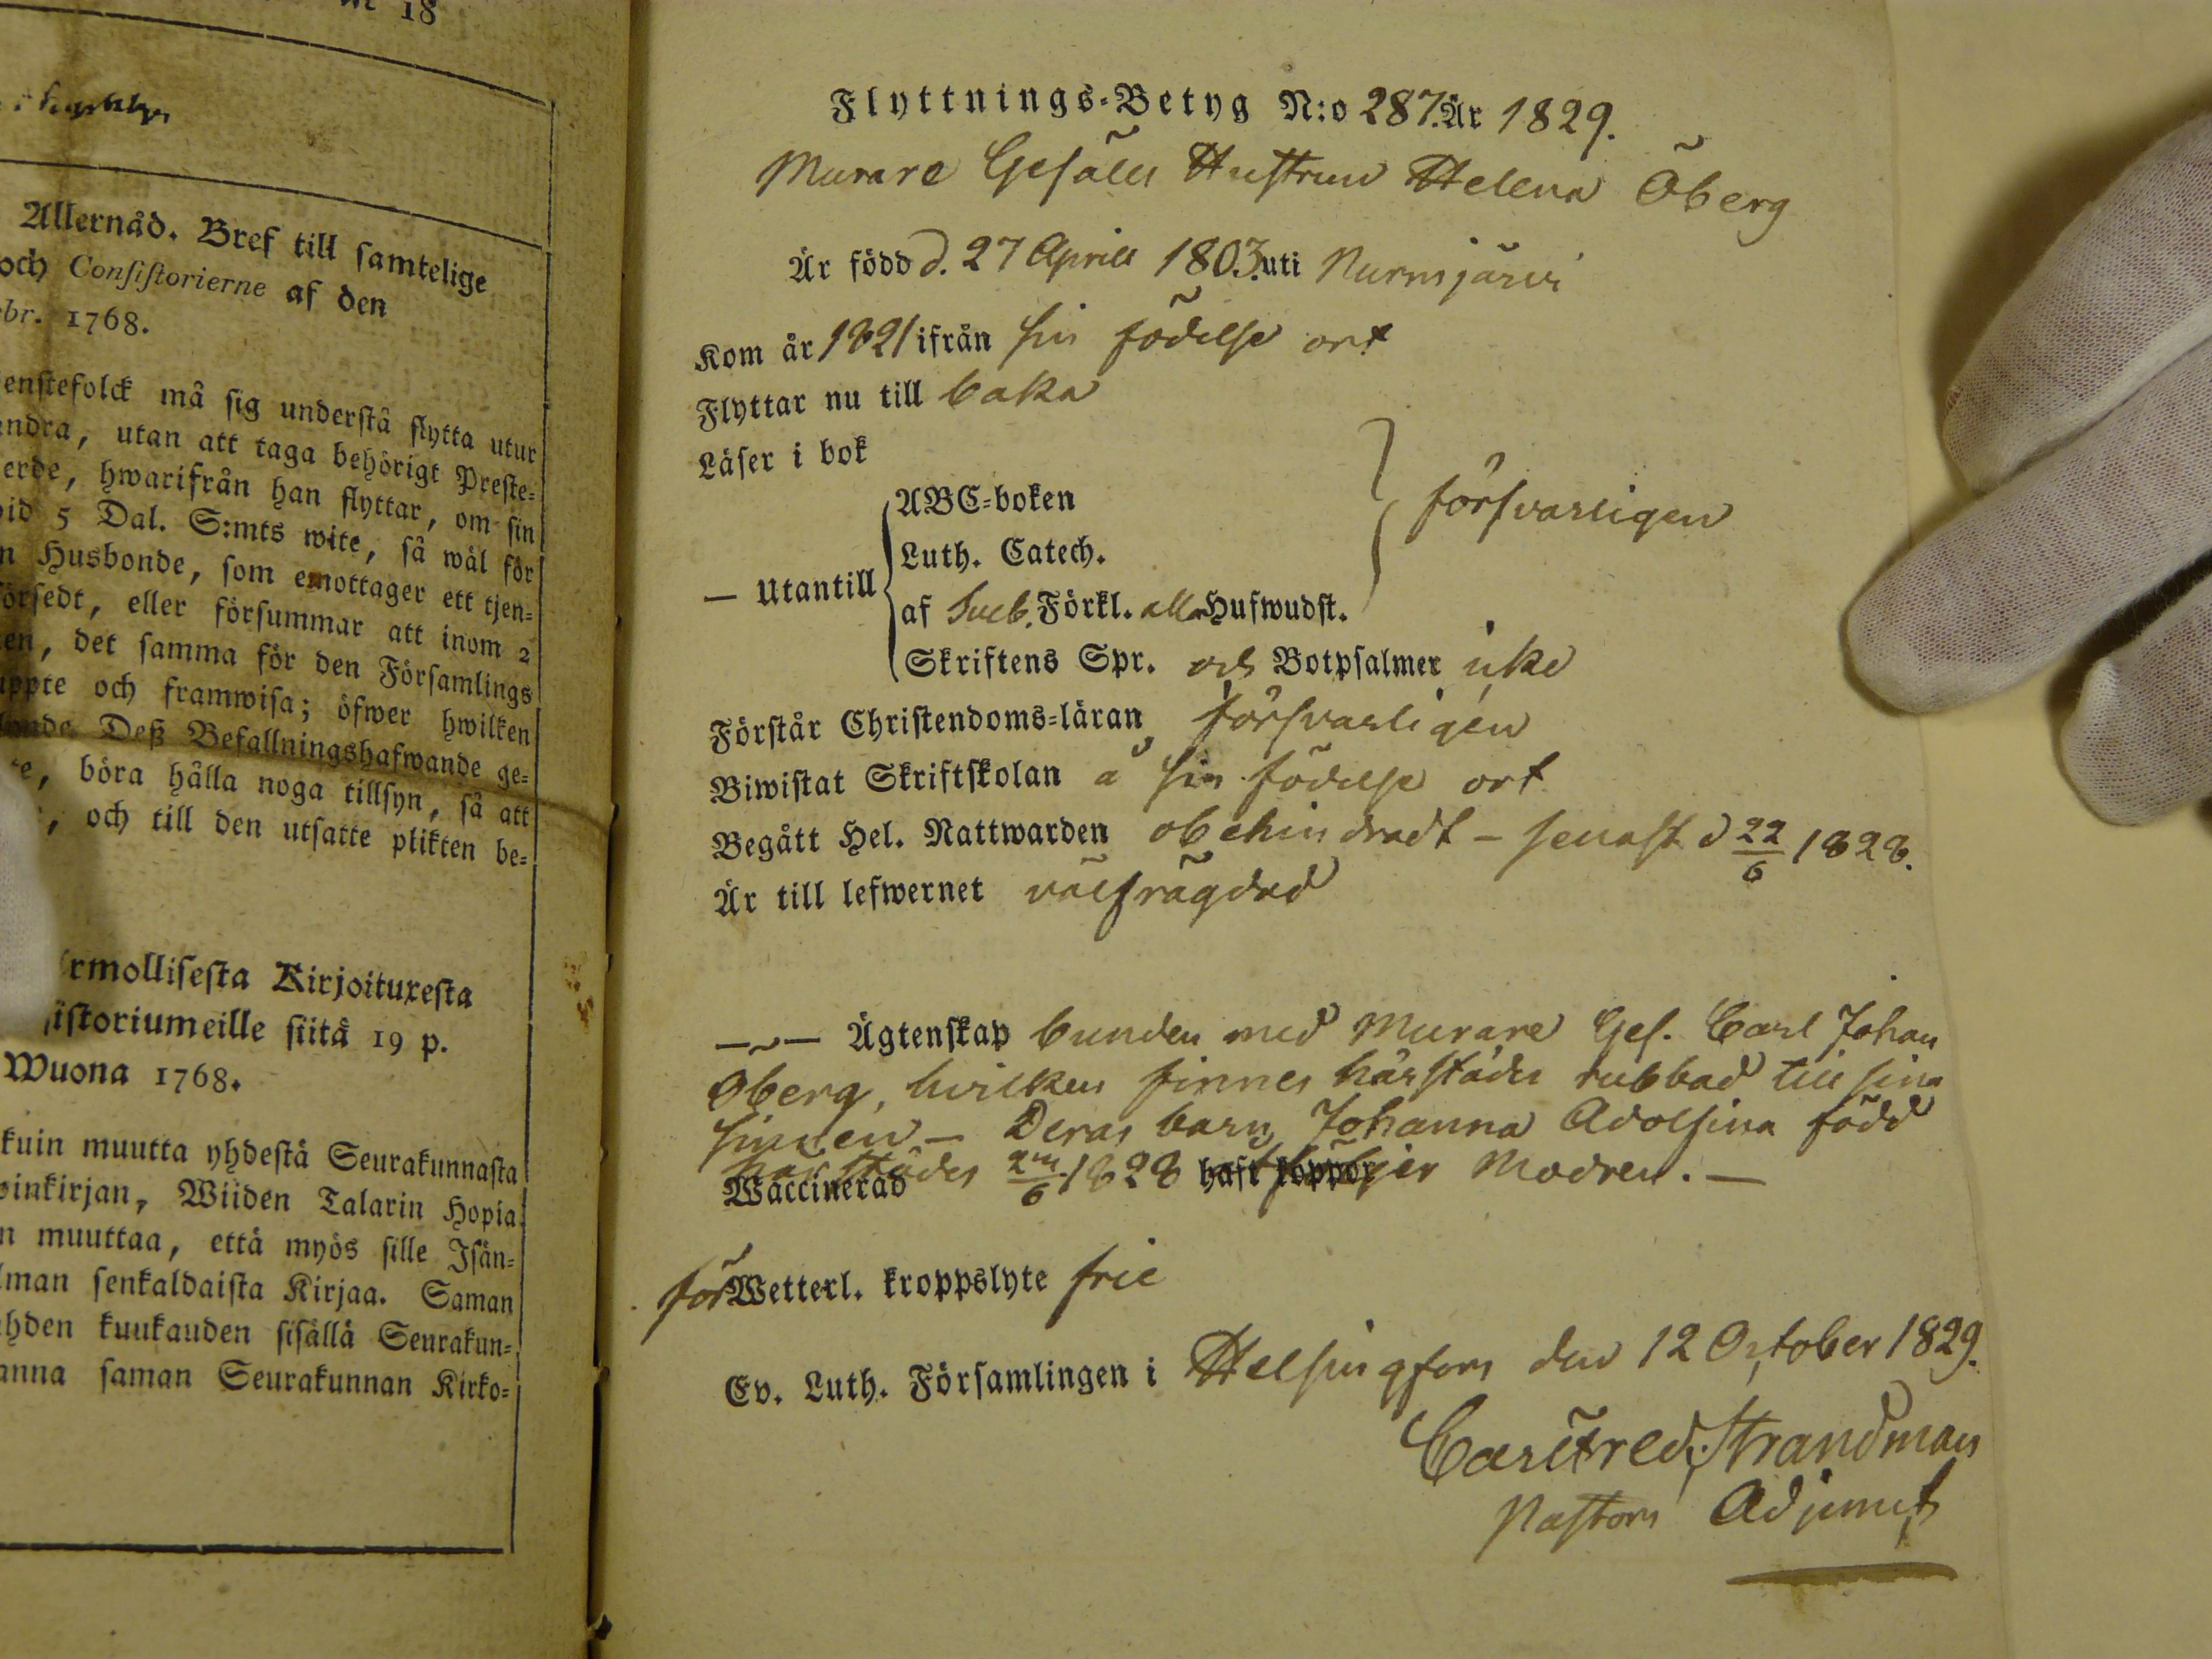 18
Allernåd. Bref till samtelige
och Consistorierne af den
br. 1768.
enstefolck må sig understå flytta utur
ndra, utan att taga behörigt Preste-
erde, hwarifrån han flyttar, om sin
id 5 Dal. S:mts wite, så wäl för
n Husbonde, som emottager ett tjen-
örsedt, eller försummar att inom 2
en, det samma för den Församlings
uppte och framwisa; öfwer hwilken
lande Deß Befallningshafwande ge-
e, böra hålla noga tillsyn, så att
, och till den utsatte plikten be-
rmollisesta Kirjoituxesta
sistoriumeille siitä 19 p.
Wuona 1768.
kuin muutta yhdestä Seurakunnasta
inkirjan, Wiiden Talarin Hopia
n muuttaa, että myös sille Isän-
lman senkaldaista Kirjaa. Saman
hden kuukauden sisällä Seurakun-
anna saman Seurakunnan Kirko-
Flyttnings-Betyg N:o 287. År 1829.
Murare Gesälls Hustrun Helena Öberg
Är född d. 27 Aprill 1803. uti Nurmijärvi
Kom år 1821 ifrån sin födelse ort
Flyttar nu till baka
Läser i bok
ABC-boken
försvarligen
Luth. Catech.
— Utantill
af Sveb. Förkl. alla Hufwudst.
Skriftens Spr. och Botpsalmer icke
Förstår Christendoms-läran försvarligen
Biwistat Skriftskolan å sin födelse ort
Begått Hel. Nattwarden obehindradt - senast d 22/6 1828.
Är till lefwernet välfrägdad
—~— Ägtenskap bunden med Murare Ges. Carl Johan
Öberg, hvilken finnes härstädes rubbad till sina
sinnen - Deras barn Johanna Adolfina född
härstädes 1828 följer Modren. —
Waccinerad haft koppor
för Wetterl. kroppslyte frie
Ev. Luth. Församlingen i Helsingfors den 12 October 1829.
Carl Fred. Strandman
Pastors Adjunct